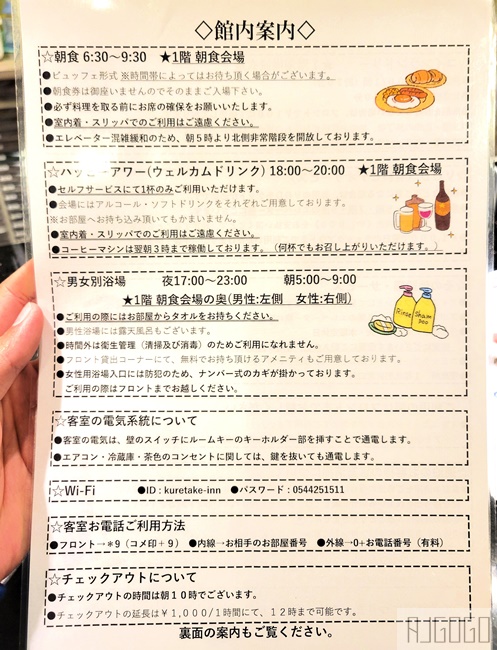 ◇館内案内◇
☆朝食 6:30～9:30 ★1階 朝食会場
●ビュッフェ形式 ※時間帯によってはお待ち頂く場合がございます。
●朝食券は御座いませんのでそのままご入場下さい。
●必ず料理を取る前にお席の確保をお願いいたします。
●室内着・スリッパでのご利用はご遠慮ください。
●エレベーター混雑緩和のため、朝５時より北側非常階段を開放しております。
☆ハッピーアワー(ウェルカムドリンク) 18:00～20:00 ★1階 朝食会場
●セルフサービスにて1杯のみご利用いただけます。
●会場にはアルコール・ソフトドリンクをそれぞれご用意しております。
※お部屋へお持ち込み頂いてもかまいません。
●室内着・スリッパでのご利用はご遠慮ください。
●コーヒーマシンは翌朝３時まで稼働しております。（何杯でもお召し上がりいただけます。）
☆男女別浴場 夜17:00～23:00 朝5:00～9:00
★1階 朝食会場の奥(男性:左側 女性:右側)
●ご利用の際にはお部屋からタオルをお持ちください。
●男性浴場には露天風呂もございます。
●時間外は衛生管理（清掃及び消毒）のためご利用になれません。
●フロント貸出コーナーにて、無料でお持ち頂けるアメニティもご用意しております。
●女性用浴場入口には防犯のため、ナンバー式のカギが掛かっております。
ご利用の際はフロントまでお越しください。
Rinse
Sham poo
☆客室の電気系統について
●客室の電気は、壁のスイッチにルームキーのキーホルダー部を挿すことで通電します。
●エアコン・冷蔵庫・茶色のコンセントに関しては、鍵を抜いても通電します。
☆Wi-Fi ●ID : kuretake-inn ●パスワード : 0544251511
☆客室お電話ご利用方法
●フロント→＊9（コメ印＋９） ●内線→お相手のお部屋番号 ●外線→0+お電話番号（有料）
☆チェックアウトについて
●チェックアウトの時間は朝１０時でございます。
●チェックアウトの延長は￥１,０００/１時間にて、１２時まで可能です。
裏面の案内もご覧ください。
AJGOGO